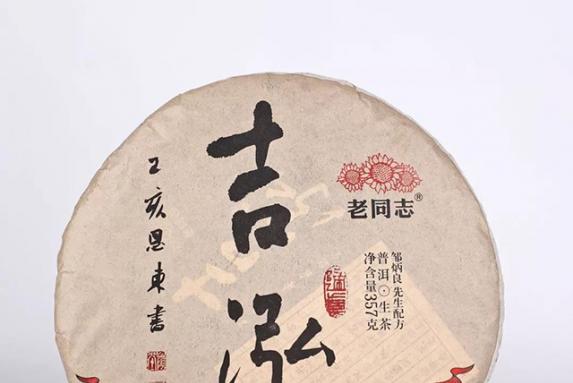 吉泓
老同志®
邹炳良先生配方
普洱·生茶
净含量357克
乙亥恩東書